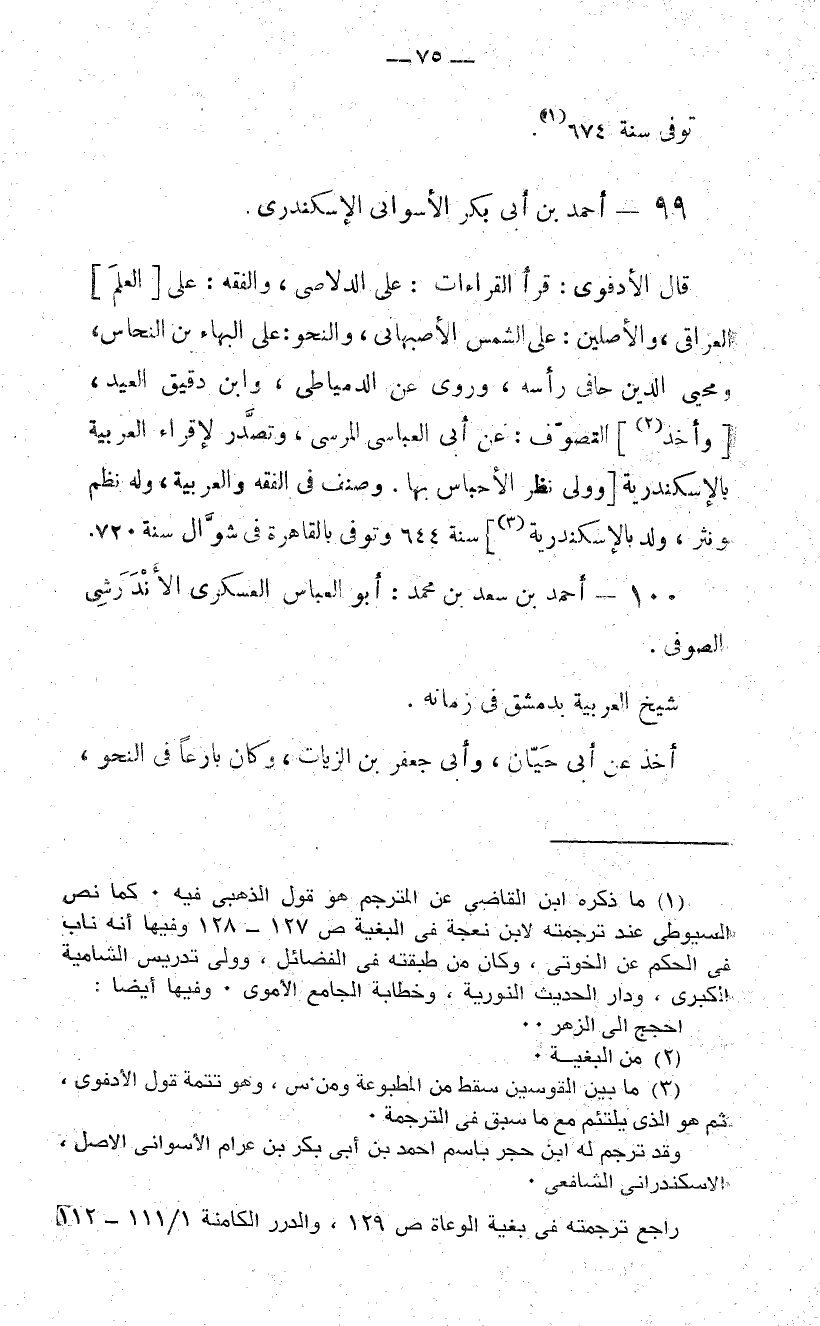 — ٧٥ —
توفى سنة ٦٧٤(١).
٩٩ — أحمد بن أبى بكر الأسوانى الإسكندرى.
قال الأدفوى: قرأ القراءات : على الدلاصى، والفقه: على [العلَم]
العراقى، والأصلين: على الشمس الأصبهانى، والنحو: على البهاء بن النحاس،
ومحيى الدين حافى رأسه، وروى عن الدمياطى، وابن دقيق العيد،
[وأخذ(٢)] القصوّف: عن أبى العباسى المرسى، وتصدَّر لإقراء العربية
بالإسكندرية [وولى نظر الأحباس بها. وصنف فى الفقه والعربية، وله نظم
ونثر، ولد بالإسكندرية(٣)] سنة ٦٤٤ وتوفى بالقاهرة فى شوَّال سنة ٧٢٠.
١٠٠ — أحمد بن سعد بن محمد: أبو العباس العسكرى الأَنْدَرَشِى
الصوفى.
شيخ العربية بدمشق فى زمانه.
أخذ عن أبى حَيّان، وأبى جعفر بن الزيات، وكان بارعاً فى النحو،
(١) ما ذكره ابن القاضى عن المترجم هو قول الذهبى فيه ٠ كما نص
السيوطى عند ترجمته لابن نعجة فى البغية ص ١٢٧ – ١٢٨ وفيها أنه ناب
فى الحكم عن الخوتى، وكان من طبقته فى الفضائل، وولى تدريس الشامية
الكبرى، ودار الحديث النورية، وخطابة الجامع الأموى ٠ وفيها أيضا :
احجج الى الزهر ٠٠
(٢) من البغيــة ٠
(٣) ما بين القوسين سقط من المطبوعة ومن س، وهو تتمة قول الأدفوى،
ثم هو الذى يلتئم مع ما سبق فى الترجمة ٠
وقد ترجم له ابن حجر باسم احمد بن أبى بكر بن عرام الأسوانى الاصل،
الاسكندرانى الشافعى ٠
راجع ترجمته فى بغية الوعاة ص ١٢٩، والدرر الكامنة ١/١١١ – ١١٢